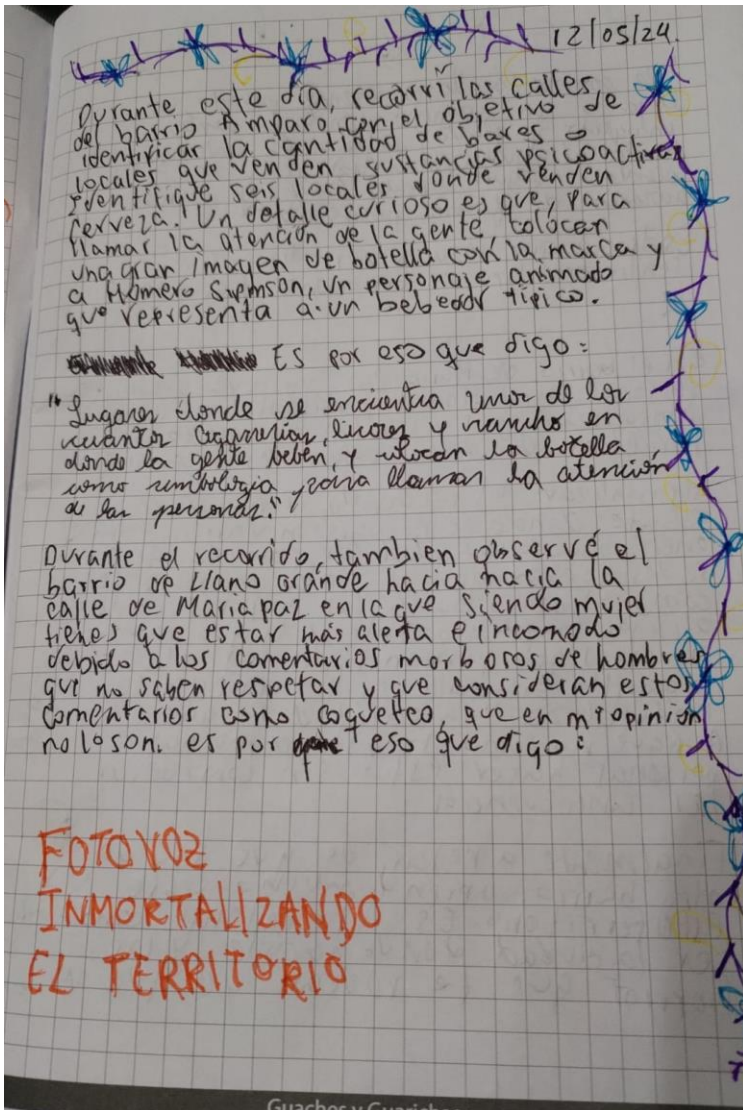 12/05/24.
Durante este día, recorrí las calles
del barrio Amparo con el objetivo de
identificar la cantidad de bares o
locales que venden sustancias psicoactivas
Identifique seis locales donde venden
cerveza. Un detalle curioso es que, para
llamar la atención de la gente colocan
una gran imagen de botella con la marca y
a Homero Simpson, un personaje animado
que representa a un bebedor típico.
Es por eso que digo:
"Lugares donde se encuentra unos de los
cuantos cigarrerias, licores y rancho en
donde la gente beben, y colocan la botella
como simbología, para llamar la atención
de las personas."
Durante el recorrido, tambien observé el
barrio de Llano grande hacia hacia la
calle de Maria paz en la que siendo mujer
tienes que estar más alerta e incomodo
debido a los comentarios morbosos de hombres
que no saben respetar y que consideran estos
comentarios como coqueteo, que en mi opinión
no lo son. es por eso que digo:
FOTOVOZ
INMORTALIZANDO
EL TERRITORIO